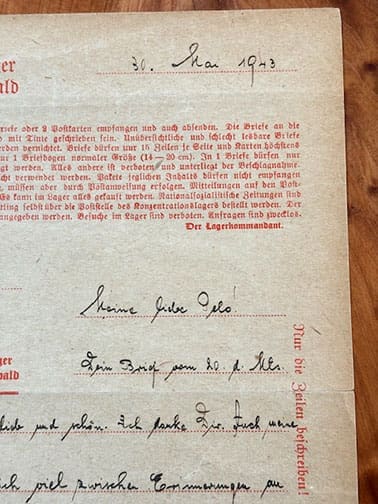 ger
ald
30. Mai 1943
riefe oder 2 Postkarten empfangen und auch absenden. Die Briefe an die
d mit Tinte geschrieben sein. Unübersichtliche und schlecht lesbare Briefe
rden vernichtet. Briefe dürfen nur 15 Zeilen je Seite und Karten höchstens
ur 1 Briefbogen normaler Größe (14 – 20 cm). In 1 Briefe dürfen nur
egt werden. Alles andere ist verboten und unterliegt der Beschlagnahme.
cht verwendet werden. Pakete jeglichen Inhalts dürfen nicht empfangen
, müssen aber durch Postanweisung erfolgen. Mitteilungen auf den Post-
Es kann im Lager alles gekauft werden. Nationalsozialistische Zeitungen sind
rling selbst über die Poststelle des Konzentrationslagers bestellt werden. Der
angegeben werden. Besuche im Lager sind verboten. Anfragen sind zwecklos.
Der Lagerkommandant.
Meine liebe
ger
wald
Dein Brief vom 20. d. Mts.
und schön. Ich danke Dir. Auch meine
ich viel zwischen Erinnerungen an
Nur die Zeilen beschreiben!